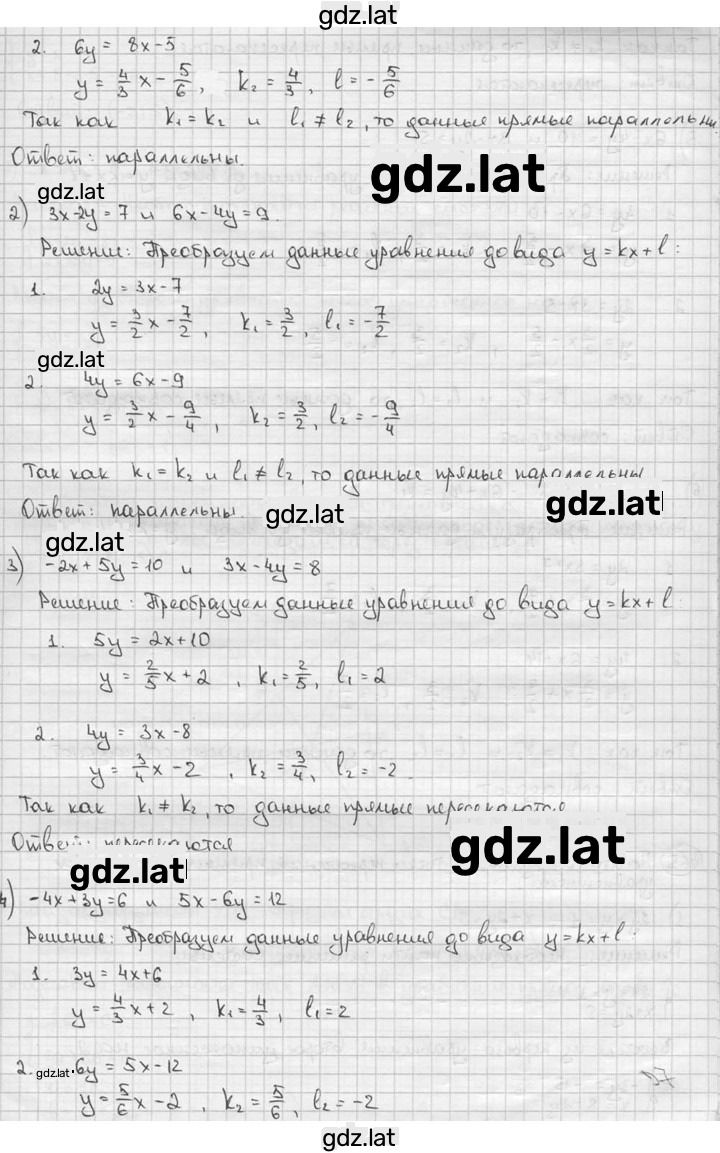 gdz.lat
2. 6y = 8x-5
y = 4/3 x - 5/6, k₂ = 4/3, l = - 5/6
Так как k₁ = k₂ и l₁ ≠ l₂, то данные прямые параллельны.
Ответ: параллельны.
gdz.lat
gdz.lat
2) 3x-2y=7 и 6x-4y=9.
Решение: Преобразуем данные уравнения до вида y=kx+l:
1. 2y = 3x-7
y = 3/2 x - 7/2, k₁ = 3/2, l₁ = - 7/2
gdz.lat
2. 4y = 6x-9
y = 3/2 x - 9/4, k₂ = 3/2, l₂ = - 9/4
Так как k₁ = k₂ и l₁ ≠ l₂, то данные прямые параллельны
Ответ: параллельны.
gdz.lat
gdz.lat
gdz.lat
3) -2x+5y=10 и 3x-4y=8
Решение: Преобразуем данные уравнения до вида y=kx+l:
1. 5y = 2x+10
y = 2/5 x + 2, k₁ = 2/5, l₁ = 2
2. 4y = 3x-8
y = 3/4 x - 2, k₂ = 3/4, l₂ = -2.
Так как k₁ ≠ k₂, то данные прямые пересекаются
Ответ: пересекаются
gdz.lat
gdz.lat
4) -4x+3y=6 и 5x-6y=12
Решение: Преобразуем данные уравнения до вида y=kx+l:
1. 3y = 4x+6
y = 4/3 x + 2, k₁ = 4/3, l₁ = 2
2. gdz.lat 6y = 5x-12
y = 5/6 x - 2, k₂ = 5/6, l₂ = -2
gdz.lat